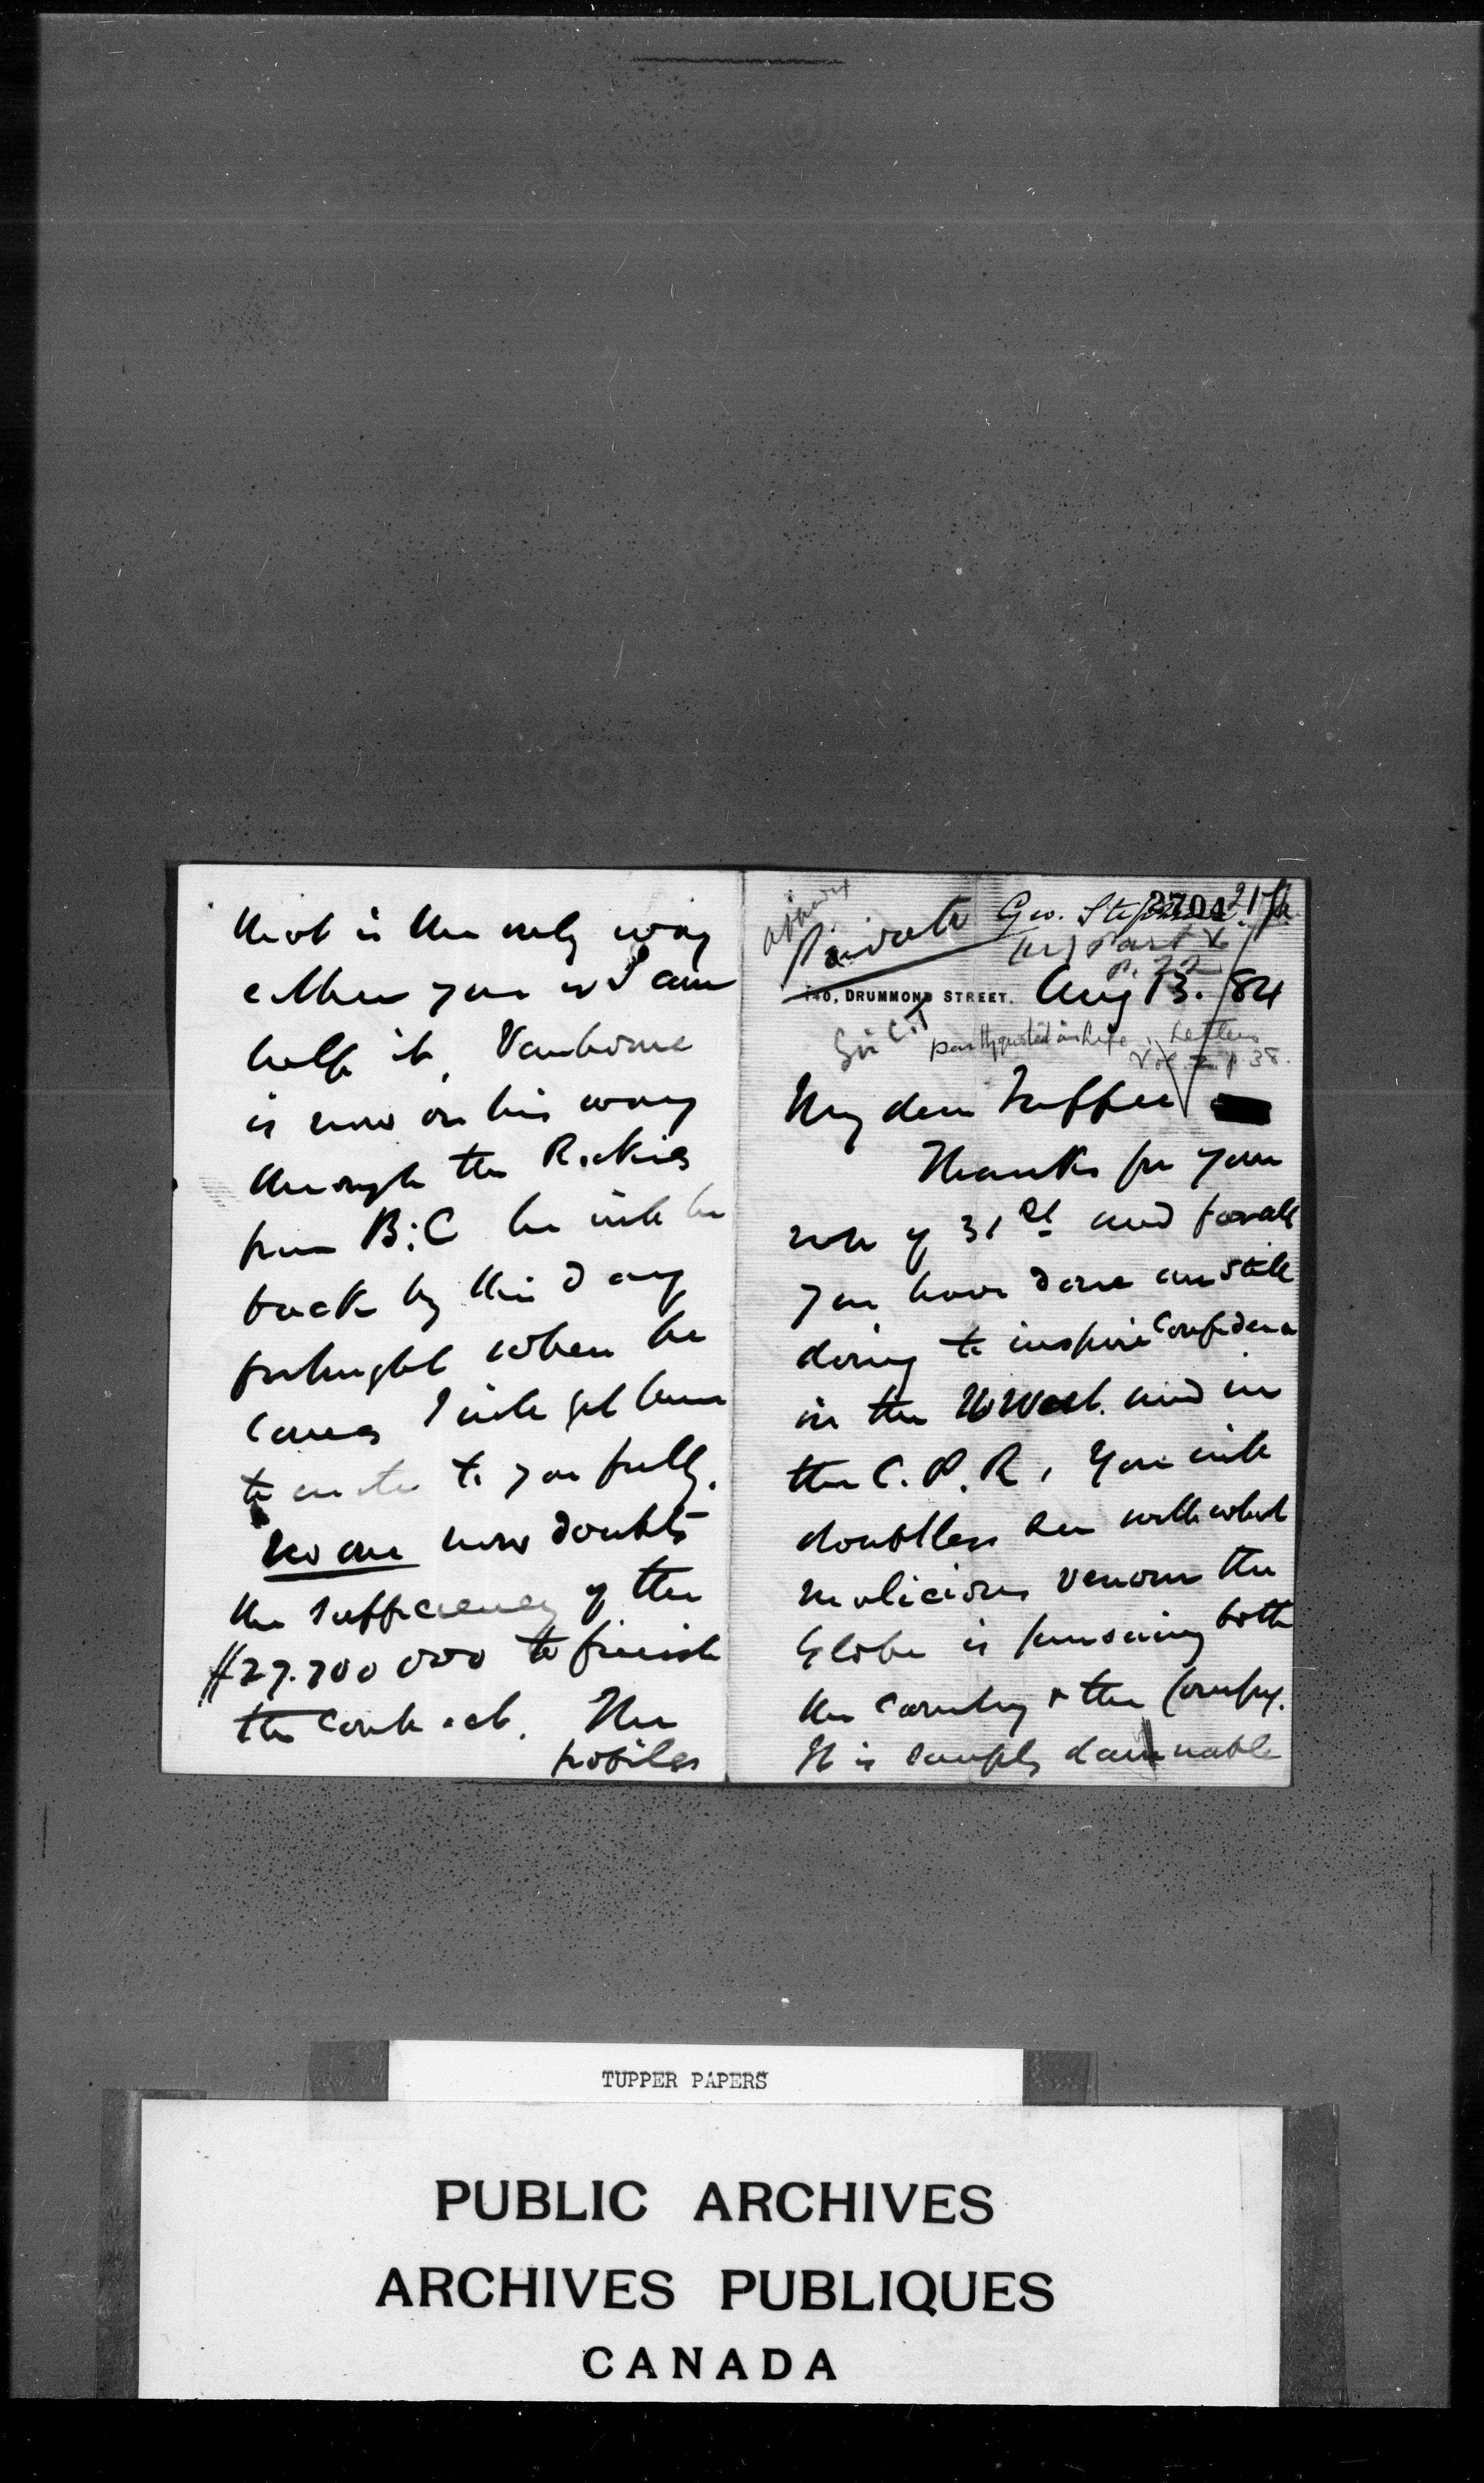 that is the only way
either you or I can
help it, Vanhorne
is now on his way
through the Rockies
from B:C he will be
back by this day
fortnight when he
comes I will get him
to write to you fully.
No one now doubts
the sufficiency of the
$27.700000 to finish
the contract. The
profiles
Private Geo. Stephen 2704
140, DRUMMOND STREET. Aug 13. /84
Sir C.T
partly quoted in Life & Letters
Vol. 2 p 38.
My dear Tupper
Thanks for your
note of 31st and for all
you have done are still
doing to inspire confidence
in the N West. and in
the C. P. R, You will
doubtless see with what
malicious venom the
Globe is pursuing both
the country & the Compy.
It is simply damnable
TUPPER PAPERS
PUBLIC ARCHIVES
ARCHIVES PUBLIQUES
CANADA